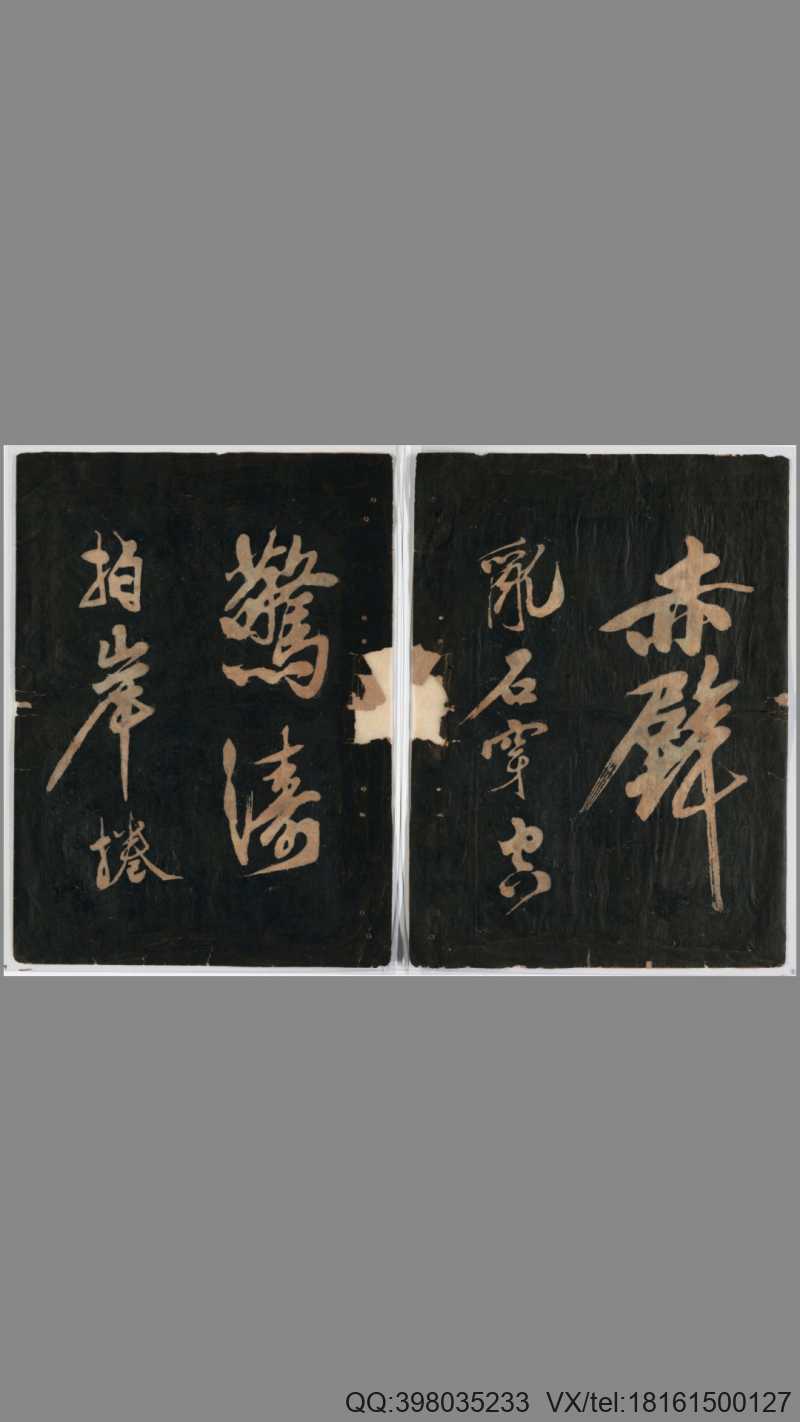 赤壁
亂石穿空
驚濤
拍岸捲
QQ:398035233 VX/tel:18161500127